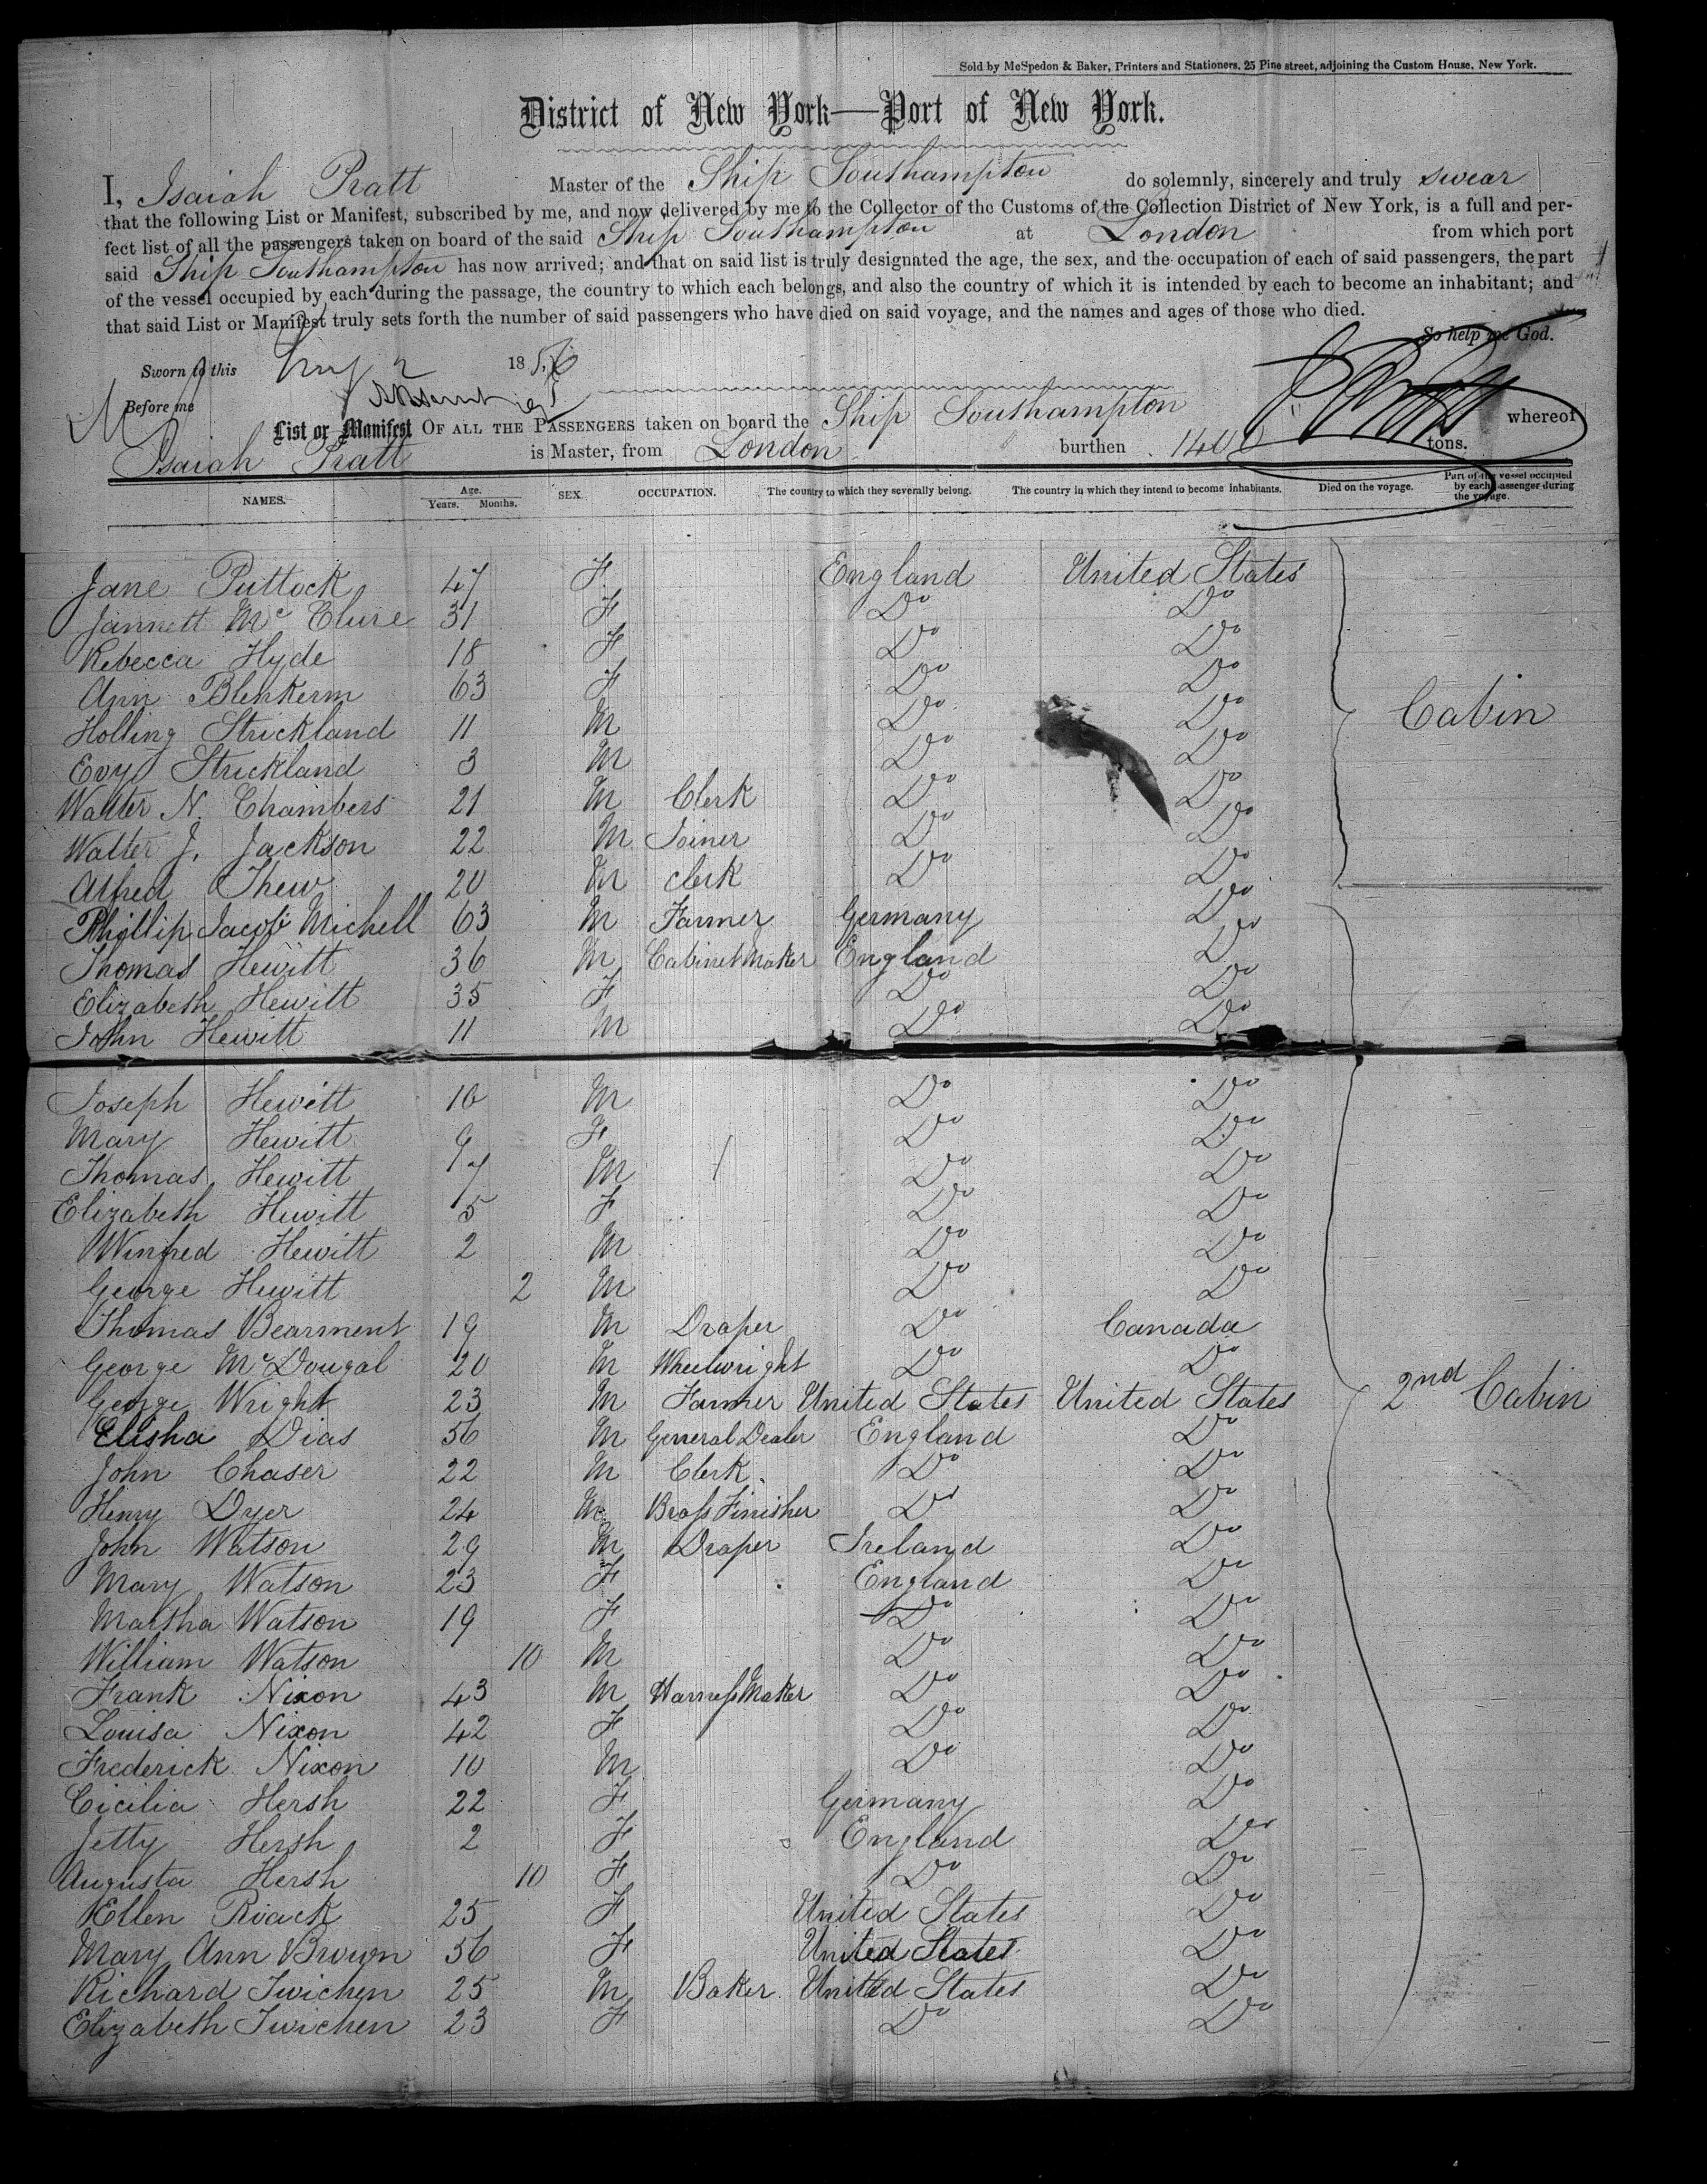 Sold by McSpedon & Baker, Printers and Stationers, 25 Pine street, adjoining the Custom House, New York.
District of New York—Port of New York.
I, Isaiah Pratt Master of the Ship Southampton do solemnly, sincerely and truly swear
that the following List or Manifest, subscribed by me, and now delivered by me to the Collector of the Customs of the Collection District of New York, is a full and per-
fect list of all the passengers taken on board of the said Ship Southampton at London from which port
said Ship Southampton has now arrived; and that on said list is truly designated the age, the sex, and the occupation of each of said passengers, the part
of the vessel occupied by each during the passage, the country to which each belongs, and also the country of which it is intended by each to become an inhabitant; and
that said List or Manifest truly sets forth the number of said passengers who have died on said voyage, and the names and ages of those who died.
So help me God.
Sworn to this 2 1856
Before me
List or Manifest OF ALL THE PASSENGERS taken on board the Ship Southampton whereof
Isaiah Pratt is Master, from London burthen 1400 tons.
NAMES. Age. Years. Months. SEX. OCCUPATION. The country to which they severally belong. The country in which they intend to become inhabitants. Died on the voyage. Part of the vessel occupied by each passenger during the voyage.
Jane Puttock 47 F England United States
Jannett Mc Clure 31 F Do Do
Rebecca Hyde 18 F Do Do
Ann Blenkerm 63 F Do Do
Holling Strickland 11 M Do Do Cabin
Evy Strickland 3 M Do Do
Walter N. Chambers 21 M Clerk Do Do
Walter J. Jackson 22 M Joiner Do Do
Alfred Thew 20 M Clerk Do Do
Phillip Jacob Michell 63 M Farmer Germany Do
Thomas Hewitt 36 M Cabinet Maker England Do
Elizabeth Hewitt 35 F Do Do
John Hewitt 11 M Do Do
Joseph Hewitt 10 M Do Do
Mary Hewitt 9 F Do Do
Thomas Hewitt 7 M Do Do
Elizabeth Hewitt 5 F Do Do
Winfred Hewitt 2 M Do Do
George Hewitt 2 M Do Do
Thomas Bearment 19 M Draper Do Canada
George McDougal 20 M Wheelwright Do Do
George Wright 23 M Farmer United States United States 2nd Cabin
Elisha Dias 56 M General Dealer England Do
John Chaser 22 M Clerk. Do Do
Henry Dyer 24 M Brass Finisher Do Do
John Watson 29 M Draper Ireland Do
Mary Watson 23 F England Do
Martha Watson 19 F Do Do
William Watson 10 M Do Do
Frank Nixon 43 M Harness Maker Do Do
Louisa Nixon 42 F Do Do
Frederick Nixon 10 M Do Do
Cicilia Hersh 22 F Germany Do
Jetty Hersh 2 F England Do
Augusta Hersh 10 F Do Do
Ellen Roack 25 F United States Do
Mary Ann Brown 56 F United States Do
Richard Twichen 25 M Baker United States Do
Elizabeth Twichen 23 F Do Do